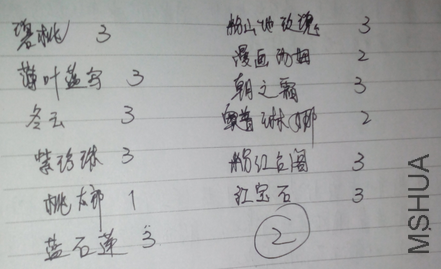 碧桃 3
薄叶蓝鸟 3
冬云 3
紫珍珠 3
桃太郎 1
蓝石莲 3
粉山地玫瑰 3
漫画汤姆 2
朝之霜 3
奥普琳娜 2
粉红台阁 3
红宝石 3
2
MSHUA